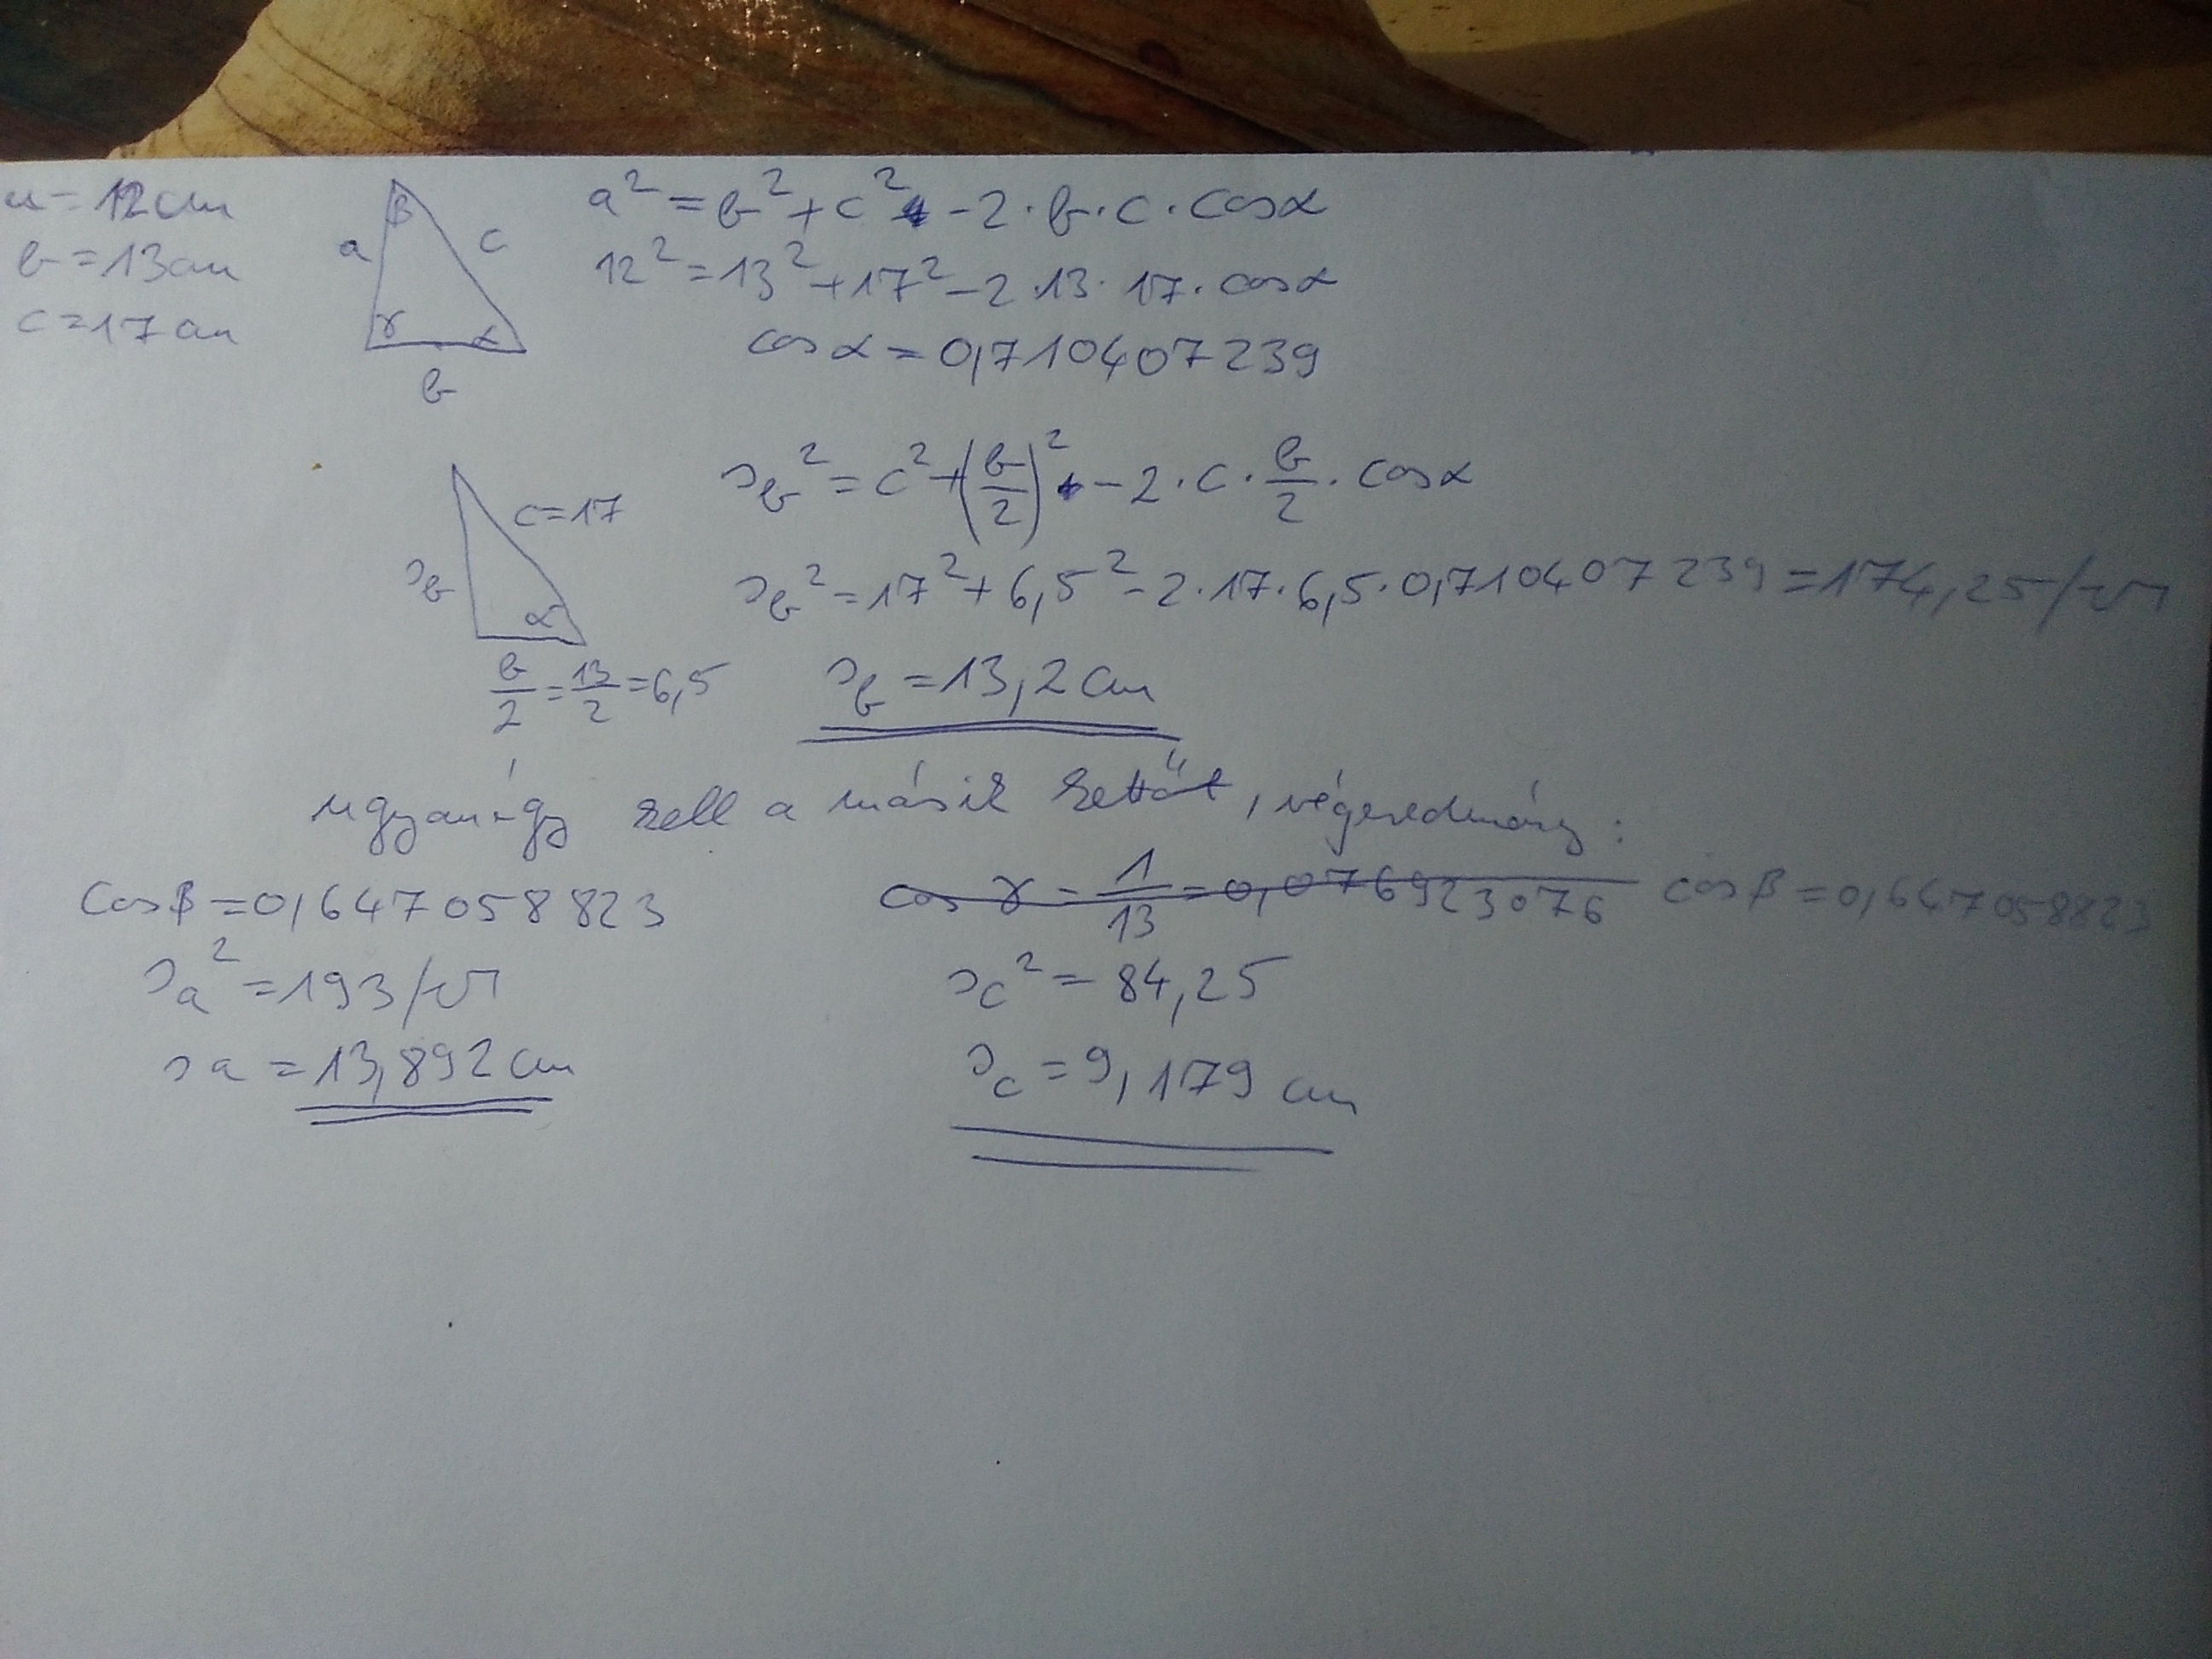 a = 12 cm
b = 13 cm
c = 17 cm
β
a
c
γ
α
b
a² = b² + c² - 2·b·c·cosα
12² = 13² + 17² - 2·13·17·cosα
cosα = 0,710407239
c=17
s_b
α
b/2 = 13/2 = 6,5
s_b² = c² + (b/2)² - 2·c·b/2·cosα
s_b² = 17² + 6,5² - 2·17·6,5·0,710407239 = 174,25 /√
s_b = 13,2 cm
ugyanígy kell a másik kettőt, végeredmény:
cosβ = 0,647058823
s_a² = 193 /√
s_a = 13,892 cm
cos γ = 1/13 = 0,076923076 cosβ = 0,647058823
s_c² = 84,25
s_c = 9,179 cm